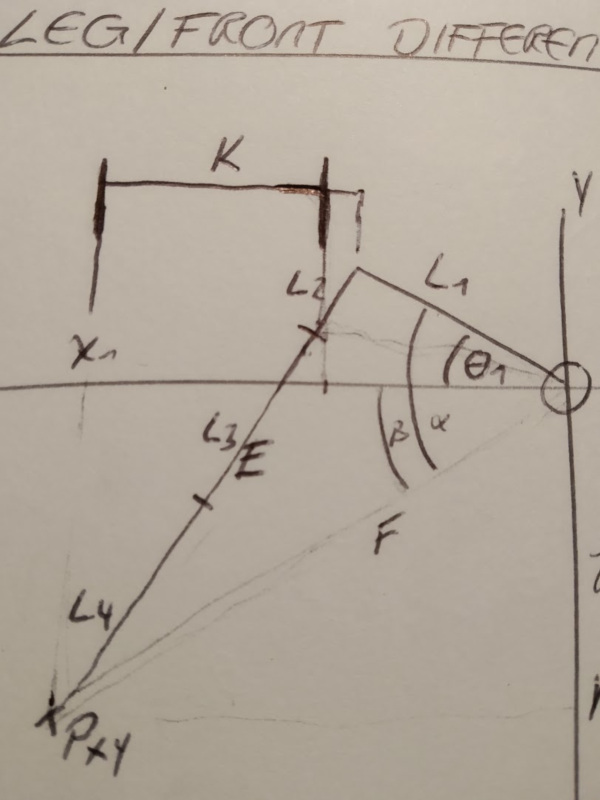 LEG/FRONT DIFFEREN
K
Y
L2
L1
X1
θ1
L3
E
β
α
F
L4
Pxy